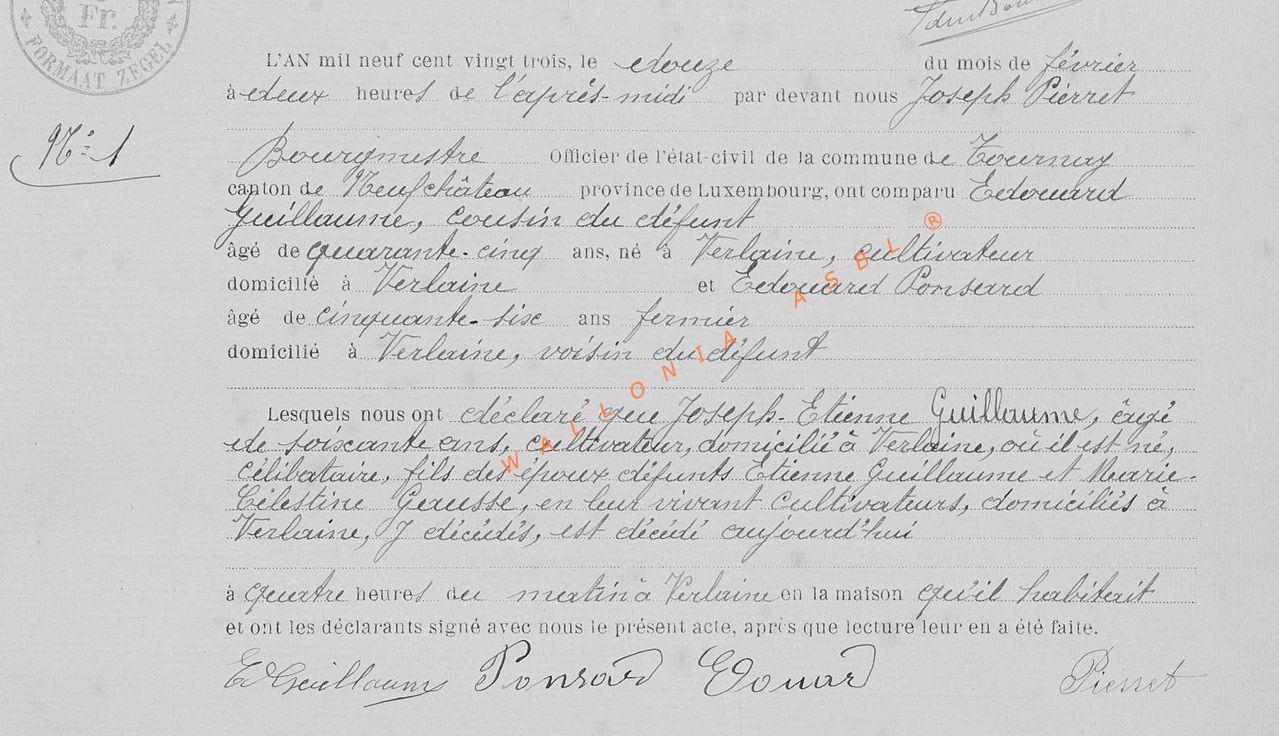 Fr.
FORMAAT ZEGEL
L'AN mil neuf cent vingt trois, le douze du mois de février
à deux heures de l'après-midi par devant nous Joseph Pierret
Nº 1
Bourgmestre Officier de l'état-civil de la commune de Tournay
canton de Neufchâteau province de Luxembourg, ont comparu Edouard
Guillaume, cousin du défunt
âgé de quarante-cinq ans, né à Verlaine, cultivateur
domicilié à Verlaine et Edouard Ponsard
âgé de cinquante-six ans fermier
domicilié à Verlaine, voisin du défunt
WALLONIA ASBL ®
Lesquels nous ont déclaré que Joseph-Etienne Guillaume, âgé
de soixante ans, cultivateur, domicilié à Verlaine, où il est né,
célibataire, fils des époux défunts Etienne Guillaume et Marie-
Célestine Geausse, en leur vivant cultivateurs, domiciliés à
Verlaine, y décédés, est décédé aujourd'hui
à quatre heures du matin à Verlaine en la maison qu'il habitait
et ont les déclarants signé avec nous le présent acte, après que lecture leur en a été faite.
Ed Guillaume Ponsard Edouard Pierret